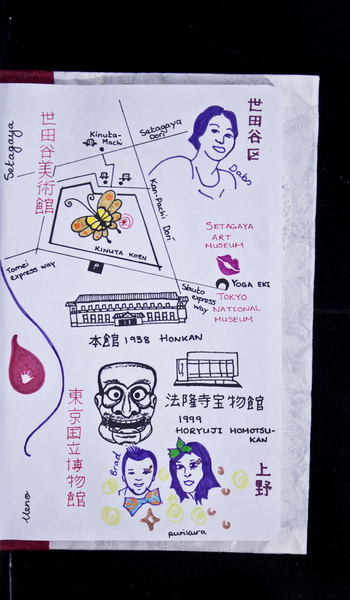 Setagaya
世田谷美術館
Kinuta-
Machi
Setagaya
Dori
世田谷区
Kan-Pachi Dori
KINUTA KOEN
P
美
Tomei
express way
Shuto express
way
SETAGAYA
ART
MUSEUM
YOGA EKI
TOKYO
NATIONAL
MUSEUM
本館 1938 HONKAN
東京国立博物館
法隆寺宝物館
1999
HORYUJI HOMOTSU-
KAN
Brad
上野
Ueno
purikura